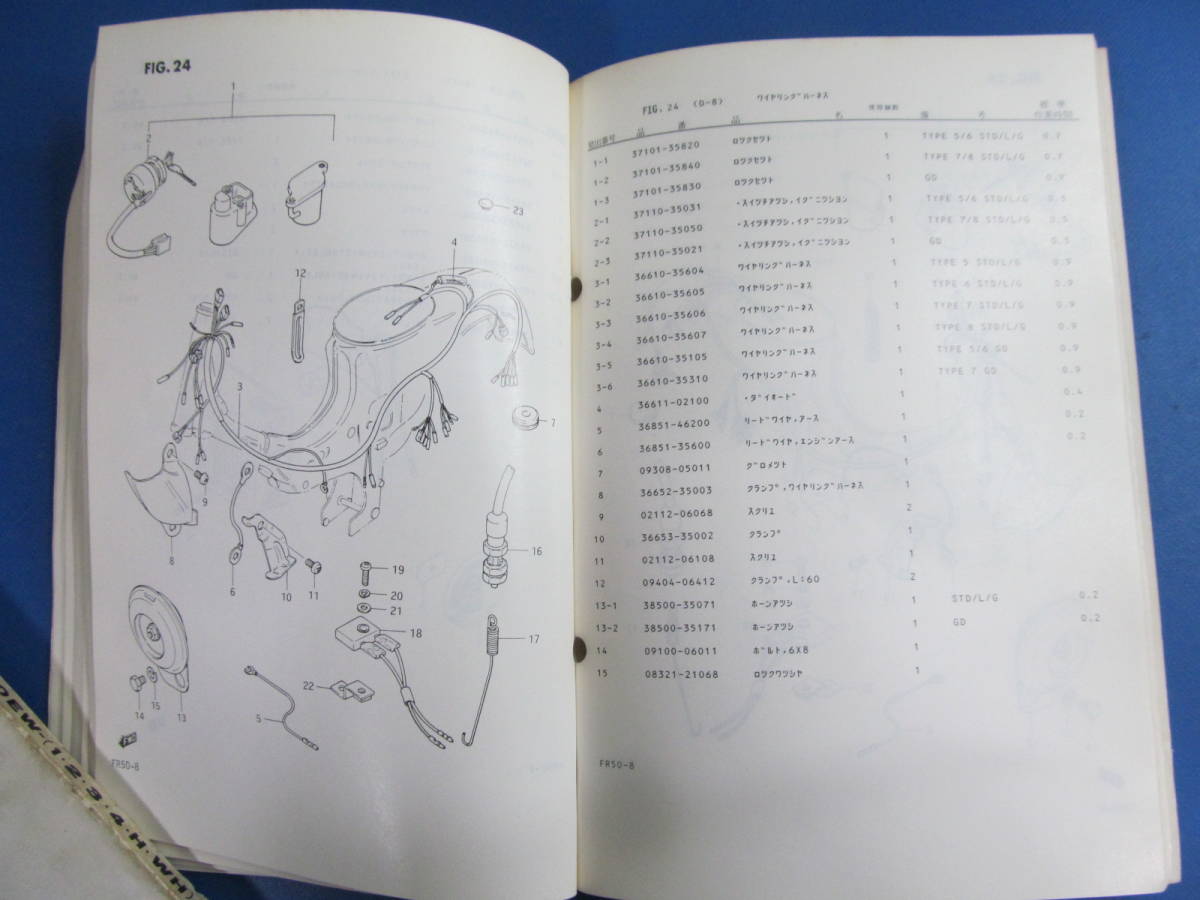 FIG. 24
1
2
23
4
12
3
7
9
8
6
10
11
16
19
20
21
18
17
22
14
15
13
5
FR50-8
DEW-(1·2·3·4·H·WH)
FIG. 24 (D-8) ワイヤリングハーネス
見出番号 品 番 品 名 使用個数 備 考 標準作業時間
1-1 37101-35820 ロツクセツト 1 TYPE 5/6 STD/L/G 0.7
1-2 37101-35840 ロツクセツト 1 TYPE 7/8 STD/L/G 0.7
1-3 37101-35830 ロツクセツト 1 GD 0.9
2-1 37110-35031 ・スイツチアツシ,イグニツシヨン 1 TYPE 5/6 STD/L/G 0.5
2-2 37110-35050 ・スイツチアツシ,イグニツシヨン 1 TYPE 7/8 STD/L/G 0.5
2-3 37110-35021 ・スイツチアツシ,イグニツシヨン 1 GD 0.5
3-1 36610-35604 ワイヤリングハーネス 1 TYPE 5 STD/L/G 0.9
3-2 36610-35605 ワイヤリングハーネス 1 TYPE 6 STD/L/G 0.9
3-3 36610-35606 ワイヤリングハーネス 1 TYPE 7 STD/L/G 0.9
3-4 36610-35607 ワイヤリングハーネス 1 TYPE 8 STD/L/G 0.9
3-5 36610-35105 ワイヤリングハーネス 1 TYPE 5/6 GD 0.9
3-6 36610-35310 ワイヤリングハーネス 1 TYPE 7 GD 0.9
4 36611-02100 ・ダイオード 1 0.4
5 36851-46200 リードワイヤ,アース 1 0.2
6 36851-35600 リードワイヤ,エンジンアース 1 0.2
7 09308-05011 グロメツト 1
8 36652-35003 クランプ,ワイヤリングハーネス 1
9 02112-06068 スクリユ 2
10 36653-35002 クランプ 1
11 02112-06108 スクリユ 1
12 09404-06412 クランプ,L:60 2
13-1 38500-35071 ホーンアツシ 1 STD/L/G 0.2
13-2 38500-35171 ホーンアツシ 1 GD 0.2
14 09100-06011 ボルト,6X8 1
15 08321-21068 ロツクワツシヤ 1
FR50-8